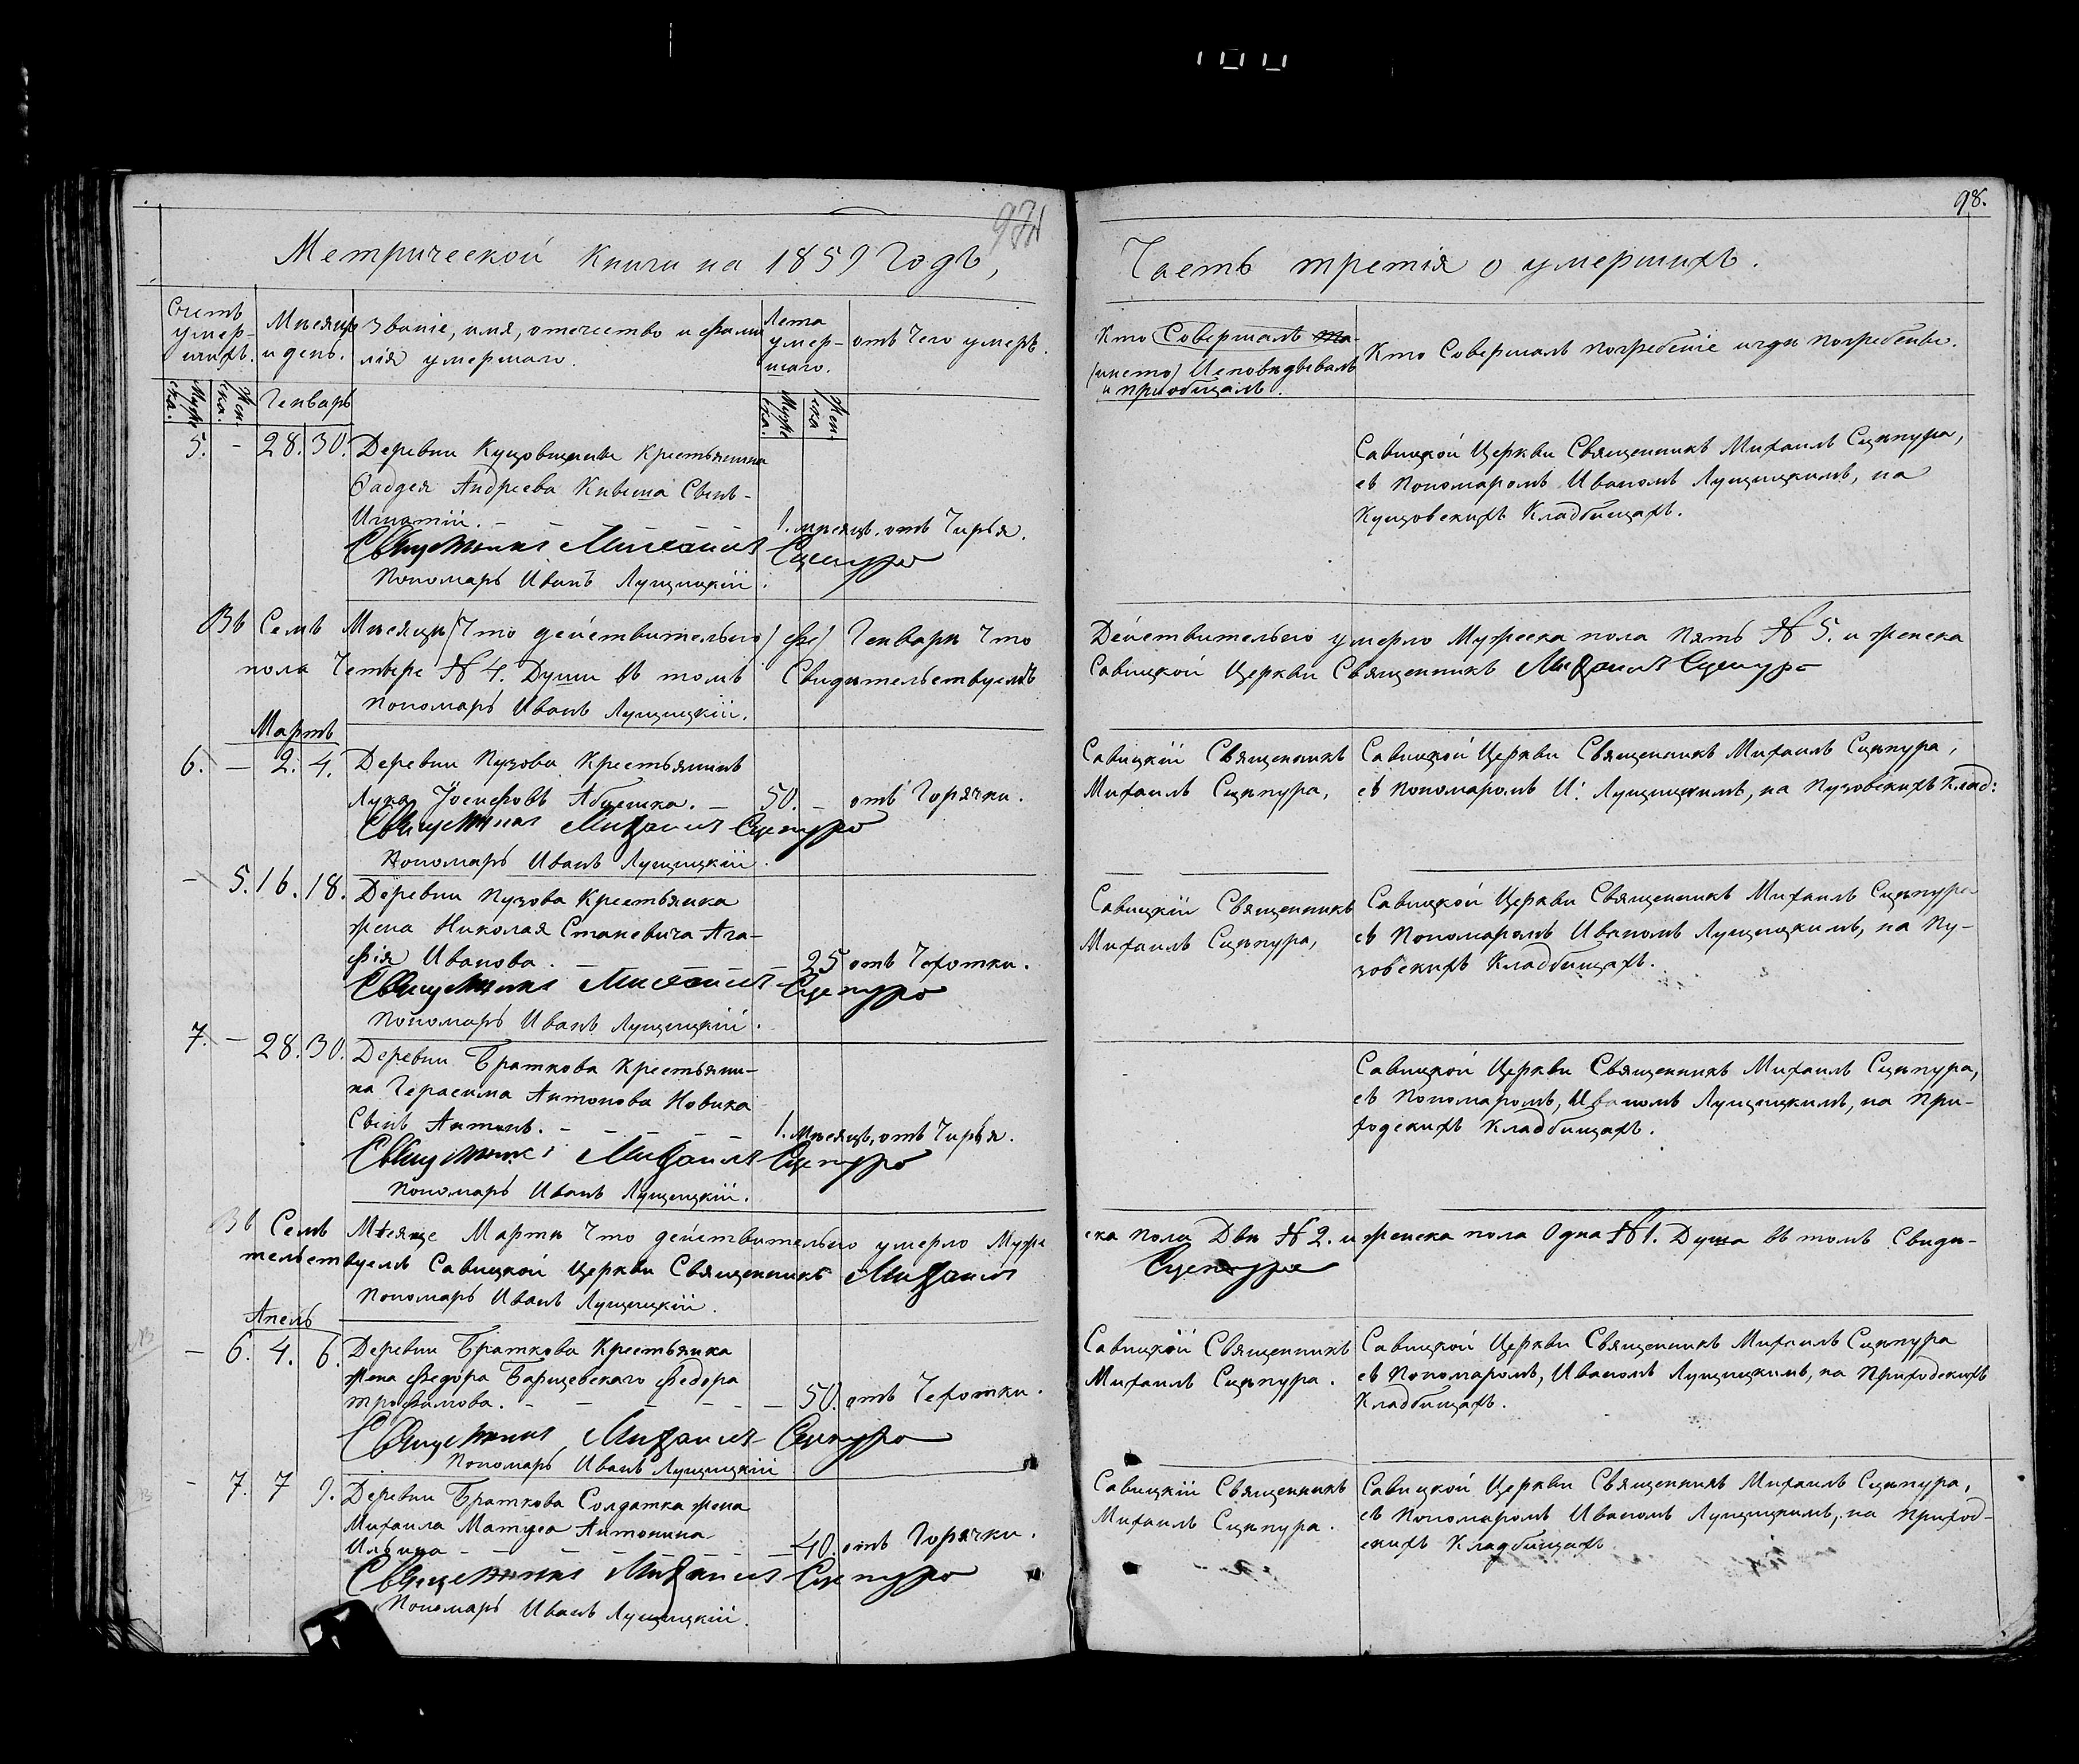 98.
Метрической Книги на 1859 Годъ,
Часть третія о умершихъ.
Счетъ умер- шихъ.
Мѣсяцъ и день.
Званіе, имя, отечество и фами лія умершаго.
Лета умер- шаго.
отъ Чего умеръ.
Кто Совершалъ
(место) Исповѣдывалъ
и пріобщалъ.
Кто Совершалъ погребеніе и гдѣ погребены.
Муже ска. Жен. ска.
Генварь
Муже ска. Жен- ска
5. - 28. 30. Деревни Крестьянина
Фадея Андреева Сынъ-
Игнатій. - 1. мѣсяцъ, отъ Чирья.
Священникъ Михаилъ Сцепуро
Пономарь Иванъ Лущицкій.
Савицкой Церкви Священникъ Михаилъ Сцѣпура,
съ Пономаромъ Иваномъ Лущицкимъ, на
Кладбищахъ.
Въ Семъ Мѣсяцѣ (Что действительно) Генварѣ Что Действительно умерло Мужеска пола пять № 5. и женска
пола Четыре № 4. Души въ томъ Свидѣтельствуемъ Савицкой Церкви Священникъ Михаилъ Сцепуро
Пономарь Иванъ Лущицкій.
Мартъ
6. - 2. 4. Деревни Пузова Крестьянинъ
Лука - 50. - отъ Горячки.
Священникъ Михаилъ Сцепуро
Пономарь Иванъ Лущицкій.
Савицкій Священникъ
Михаилъ Сцѣпура,
Савицкой Церкви Священникъ Михаилъ Сцѣпура,
съ Пономаромъ И: Лущицкимъ, на Пузовскихъ Клад:
- 5. 16. 18. Деревни Пузова Крестьянка
жена Николая Станевича Ага-
фія Иванова. - 25 отъ Чехотки.
Священникъ Михаилъ Сцепуро
Пономарь Иванъ Лущицкій.
Савицкій Священникъ
Михаилъ Сцѣпура,
Савицкой Церкви Священникъ Михаилъ Сцѣпура
съ Пономаромъ Иваномъ Лущицкимъ, на Пу-
зовскихъ Кладбищахъ.
7. - 28. 30. Деревни Браткова Крестьяни-
на Герасима Антонова Новика
Сынъ Антонъ. - 1. Мѣсяцъ, отъ Чирья.
Священникъ Михаилъ Сцепуро
Пономарь Иванъ Лущицкій.
Савицкой Церкви Священникъ Михаилъ Сцѣпура,
съ Пономаромъ, Иваномъ Лущицкимъ, на При-
ходскихъ Кладбищахъ.
Въ Семъ Мѣсяце Мартѣ Что действительно умерло Муже
ска пола Двѣ № 2. и женска пола Одна № 1. Душа въ томъ Свидѣ-
тельствуемъ Савицкой Церкви Священникъ Михаилъ
Сцепуро
Пономарь Иванъ Лущицкій.
Апель
- 6. 4. 6. Деревни Браткова Крестьянка
жена Федора Барщевскаго Федора
трофимова. - 50. отъ Чехотки.
Священникъ Михаилъ Сцепуро
Пономарь Иванъ Лущицкій
Савицкой Священникъ
Михаилъ Сцѣпура.
Савицкой Церкви Священникъ Михаилъ Сцѣпура
съ Пономаромъ, Иваномъ Лущицкимъ, на Приходскихъ
Кладбищахъ.
- 7. 7 9. Деревни Браткова Солдатка жена
Михаила Матуса Антонина
Ильина - 40. отъ Горячки.
Священникъ Михаилъ Сцепуро
Пономарь Иванъ Лущицкій.
Савицкій Священникъ
Михаилъ Сцѣпура.
Савицкой Церкви Священникъ Михаилъ Сцѣпура,
съ Пономаромъ Иваномъ Лущицкимъ, на Приход-
скихъ Кладбищахъ